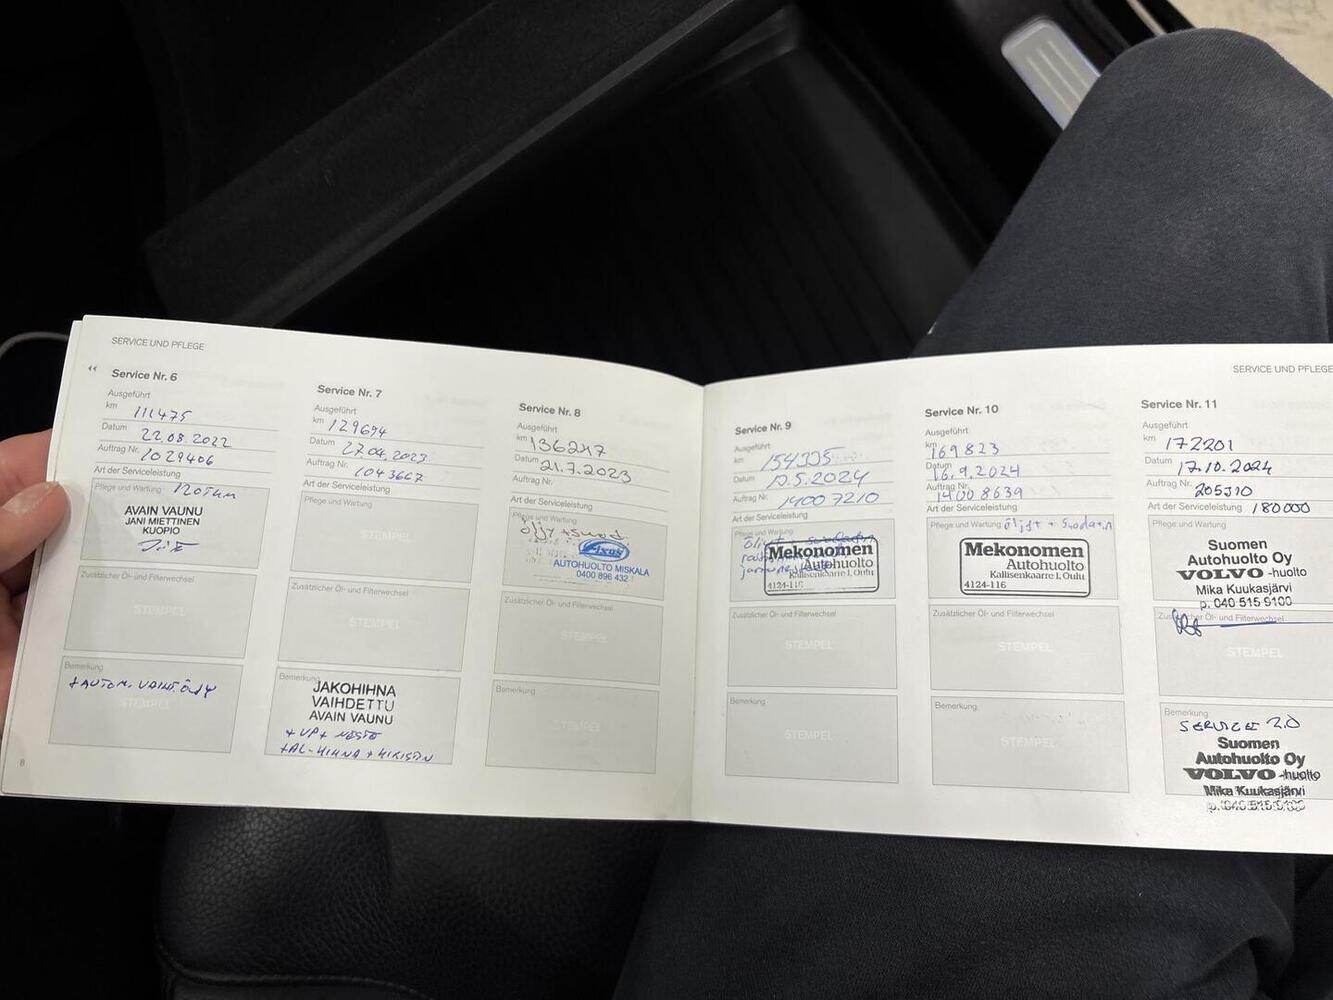 SERVICE UND PFLEGE
‹‹ Service Nr. 6
Ausgeführt
km 111475
Datum 22.08.2022
Auftrag Nr. 1029406
Art der Serviceleistung
Pflege und Wartung
AVAIN VAUNU
JANI MIETTINEN
KUOPIO
Zusätzlicher Öl- und Filterwechsel
STEMPEL
Bemerkung
+AUTOM. VAIHT. ÖLJY
STEMPEL
8
Service Nr. 7
Ausgeführt
km 129694
Datum 27.04.2023
Auftrag Nr. 1043667
Art der Serviceleistung
Pflege und Wartung
STEMPEL
Zusätzlicher Öl- und Filterwechsel
STEMPEL
Bemerkung
JAKOHIHNA
VAIHDETTU
AVAIN VAUNU
+ VP + NESTE
+AL-HIHNA + KIRISTIN
Service Nr. 8
Ausgeführt
km 136247
Datum 21.7.2023
Auftrag Nr.
Art der Serviceleistung
Pflege und Wartung
öljyt + suod.
AUTOHUOLTO MISKALA
0400 896 432
Zusätzlicher Öl- und Filterwechsel
STEMPEL
Bemerkung
STEMPEL
Service Nr. 9
Ausgeführt
km 154335
Datum
Auftrag Nr. 14007210
Art der Serviceleistung
Pflege und Wartung
Mekonomen
Autohuolto
Kallisenkaarre 1, Oulu
4124-116
Zusätzlicher Öl- und Filterwechsel
STEMPEL
Bemerkung
STEMPEL
Service Nr. 10
Ausgeführt
km 169823
Datum 16.9.2024
Auftrag Nr. 14008639
Art der Serviceleistung
Pflege und Wartung öljyt + suodatin
Mekonomen
Autohuolto
Kallisenkaarre 1, Oulu
4124-116
Zusätzlicher Öl- und Filterwechsel
STEMPEL
Bemerkung
STEMPEL
SERVICE UND PFLEGE
Service Nr. 11
Ausgeführt
km 172201
Datum 17.10.2024
Auftrag Nr. 205310
Art der Serviceleistung 180000
Pflege und Wartung
Suomen
Autohuolto Oy
VOLVO -huolto
Mika Kuukasjärvi
p. 040 515 9100
Zusätzlicher Öl- und Filterwechsel
STEMPEL
Bemerkung
SERVICE 2.0
Suomen
Autohuolto Oy
VOLVO -huolto
Mika Kuukasjärvi
p. 040 515 9100